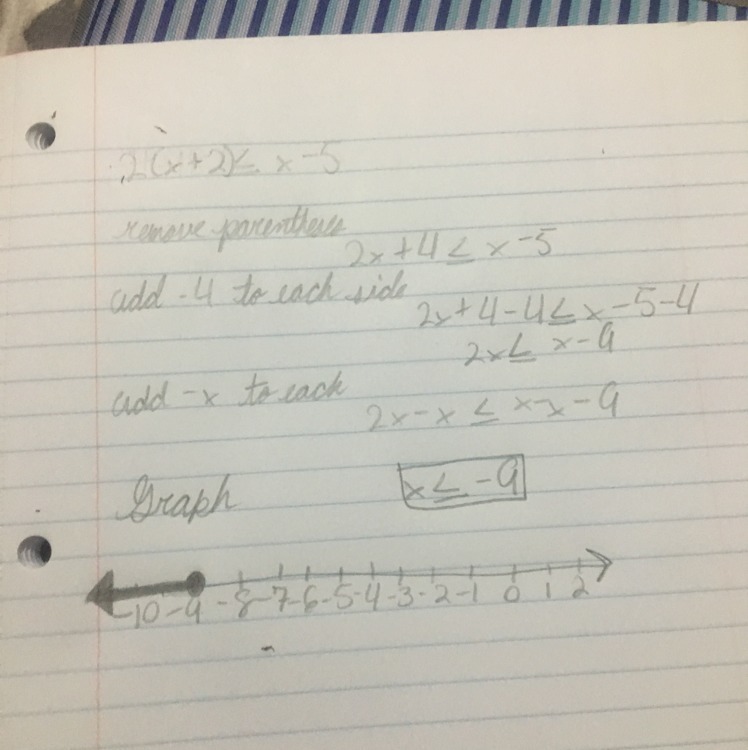 2(x+2)≤ x-5
remove parentheses
2x+4≤x-5
add -4 to each side
2x+4-4≤x-5-4
2x≤ x-9
add -x to each
2x-x ≤ x-x-9
Graph
x≤-9
-10 -9 -8 -7 -6 -5 -4 -3 -2 -1 0 1 2